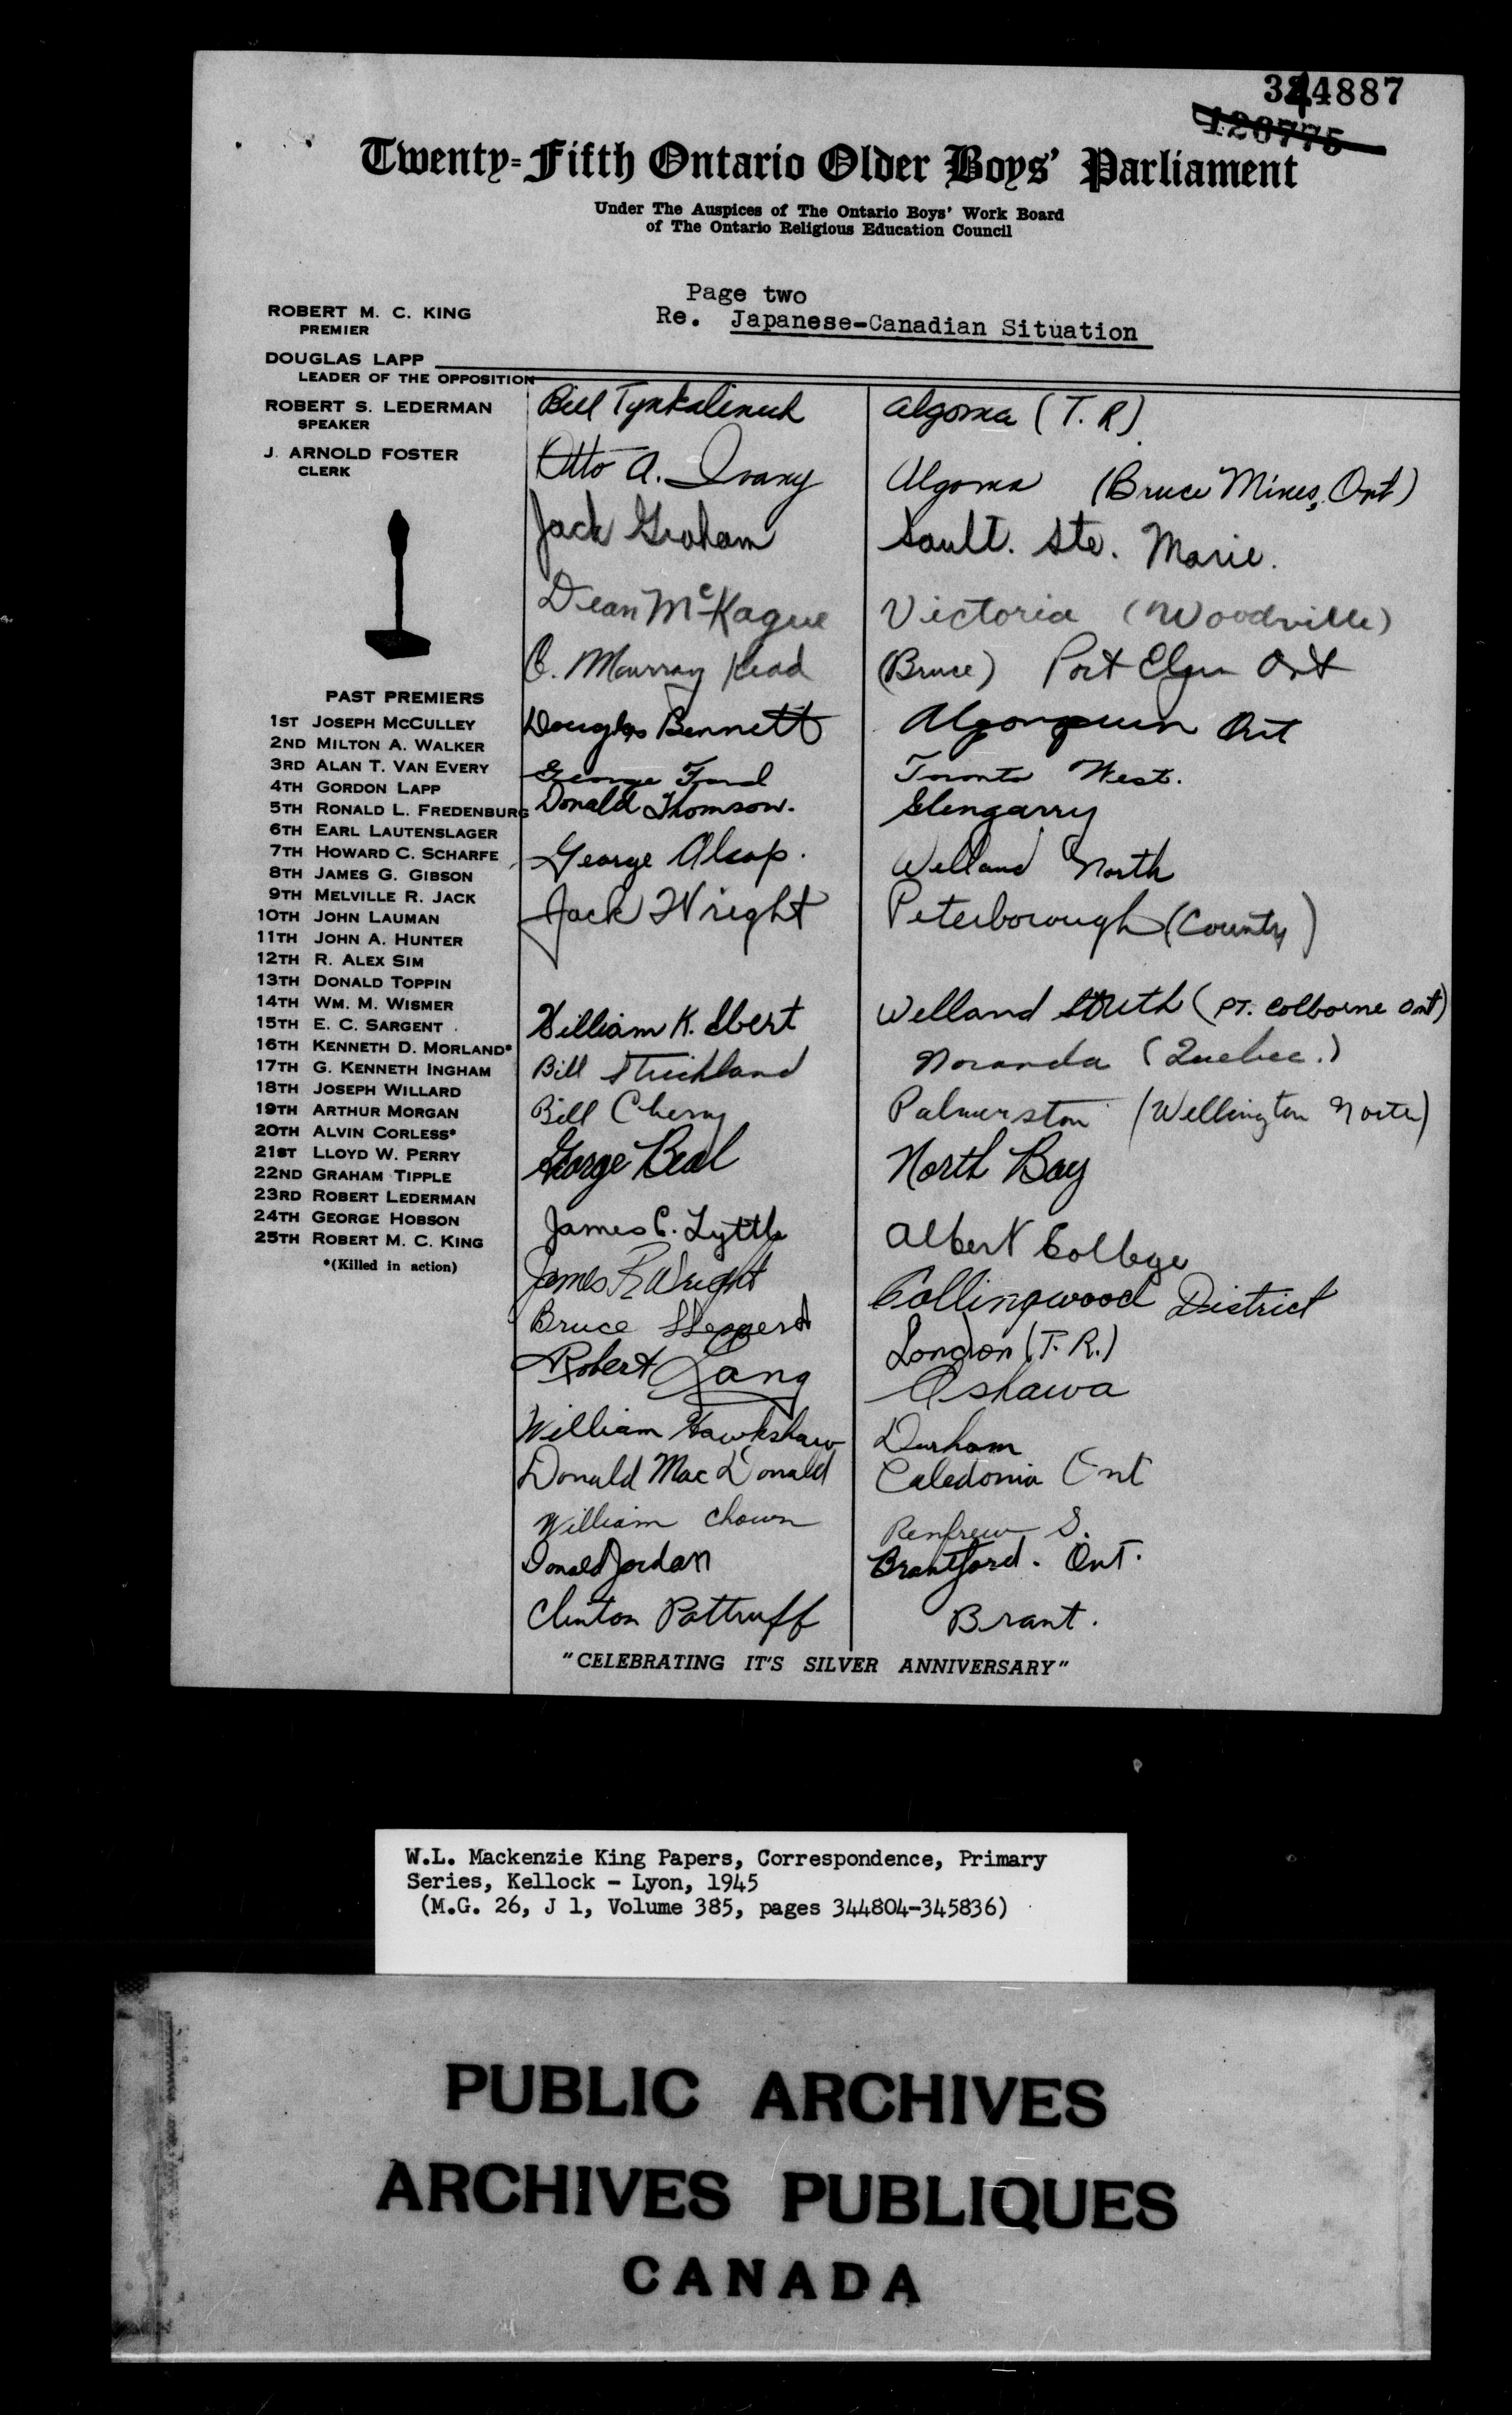 344887
126775
Twenty-Fifth Ontario Older Boys' Parliament
Under The Auspices of The Ontario Boys' Work Board
of The Ontario Religious Education Council
Page two
Re. Japanese-Canadian Situation
ROBERT M. C. KING
PREMIER
DOUGLAS LAPP
LEADER OF THE OPPOSITION
ROBERT S. LEDERMAN
SPEAKER
J. ARNOLD FOSTER
CLERK
PAST PREMIERS
1ST JOSEPH MCCULLEY
2ND MILTON A. WALKER
3RD ALAN T. VAN EVERY
4TH GORDON LAPP
5TH RONALD L. FREDENBURG
6TH EARL LAUTENSLAGER
7TH HOWARD C. SCHARFE
8TH JAMES G. GIBSON
9TH MELVILLE R. JACK
10TH JOHN LAUMAN
11TH JOHN A. HUNTER
12TH R. ALEX SIM
13TH DONALD TOPPIN
14TH WM. M. WISMER
15TH E. C. SARGENT
16TH KENNETH D. MORLAND*
17TH G. KENNETH INGHAM
18TH JOSEPH WILLARD
19TH ARTHUR MORGAN
20TH ALVIN CORLESS*
21ST LLOYD W. PERRY
22ND GRAHAM TIPPLE
23RD ROBERT LEDERMAN
24TH GEORGE HOBSON
25TH ROBERT M. C. KING
*(Killed in action)
Bill Algoma (T.R)
Otto A. Ivany Algoma (Bruce Mines, Ont)
Jack Graham Sault. Ste. Marie.
Dean McKague Victoria (Woodville)
Murray Read (Bruce) Port Elgin Ont
Douglas Bennett Algonquin Ont
George Ford Toronto West.
Donald Thomson. Glengarry
George Alsop. Welland North
Jack Wright Peterborough (County)
William K. Ebert Welland South (PT. Colborne Ont)
Bill Strickland Noranda (Quebec.)
Bill Cherry Palmerston (Wellington North)
George Beal North Bay
James C. Lyttle Albert College
James R Wright Collingwood District
Bruce Shepperd London (T.R.)
Robert Lang Oshawa
William Hawkshaw Durham
Donald MacDonald Caledonia Ont
William Chown Renfrew S.
Donald Jordan Brantford. Ont.
Clinton Pattruff Brant.
"CELEBRATING IT'S SILVER ANNIVERSARY"
W.L. Mackenzie King Papers, Correspondence, Primary
Series, Kellock - Lyon, 1945
(M.G. 26, J 1, Volume 385, pages 344804-345836)
PUBLIC ARCHIVES
ARCHIVES PUBLIQUES
CANADA